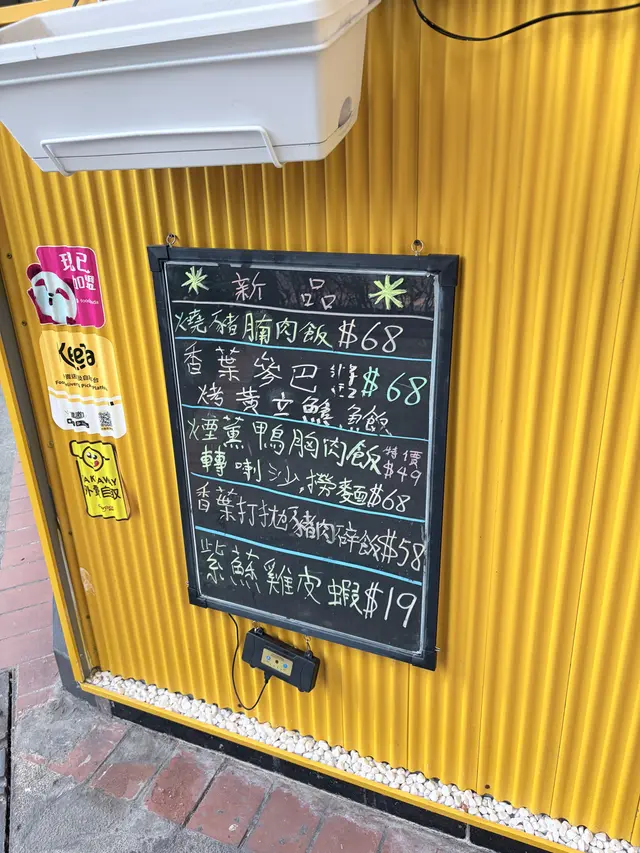 現已
加盟
foodpanda
Keeta
外賣自取
新品
燒豬腩肉飯 $68
香葉參巴 $68
烤黃立鱲魚飯
煙薰鴨胸肉飯 特價 $49
轉喇沙撈麵 $68
香葉打拋豬肉碎飯 $58
紫蘇雞皮蝦 $19